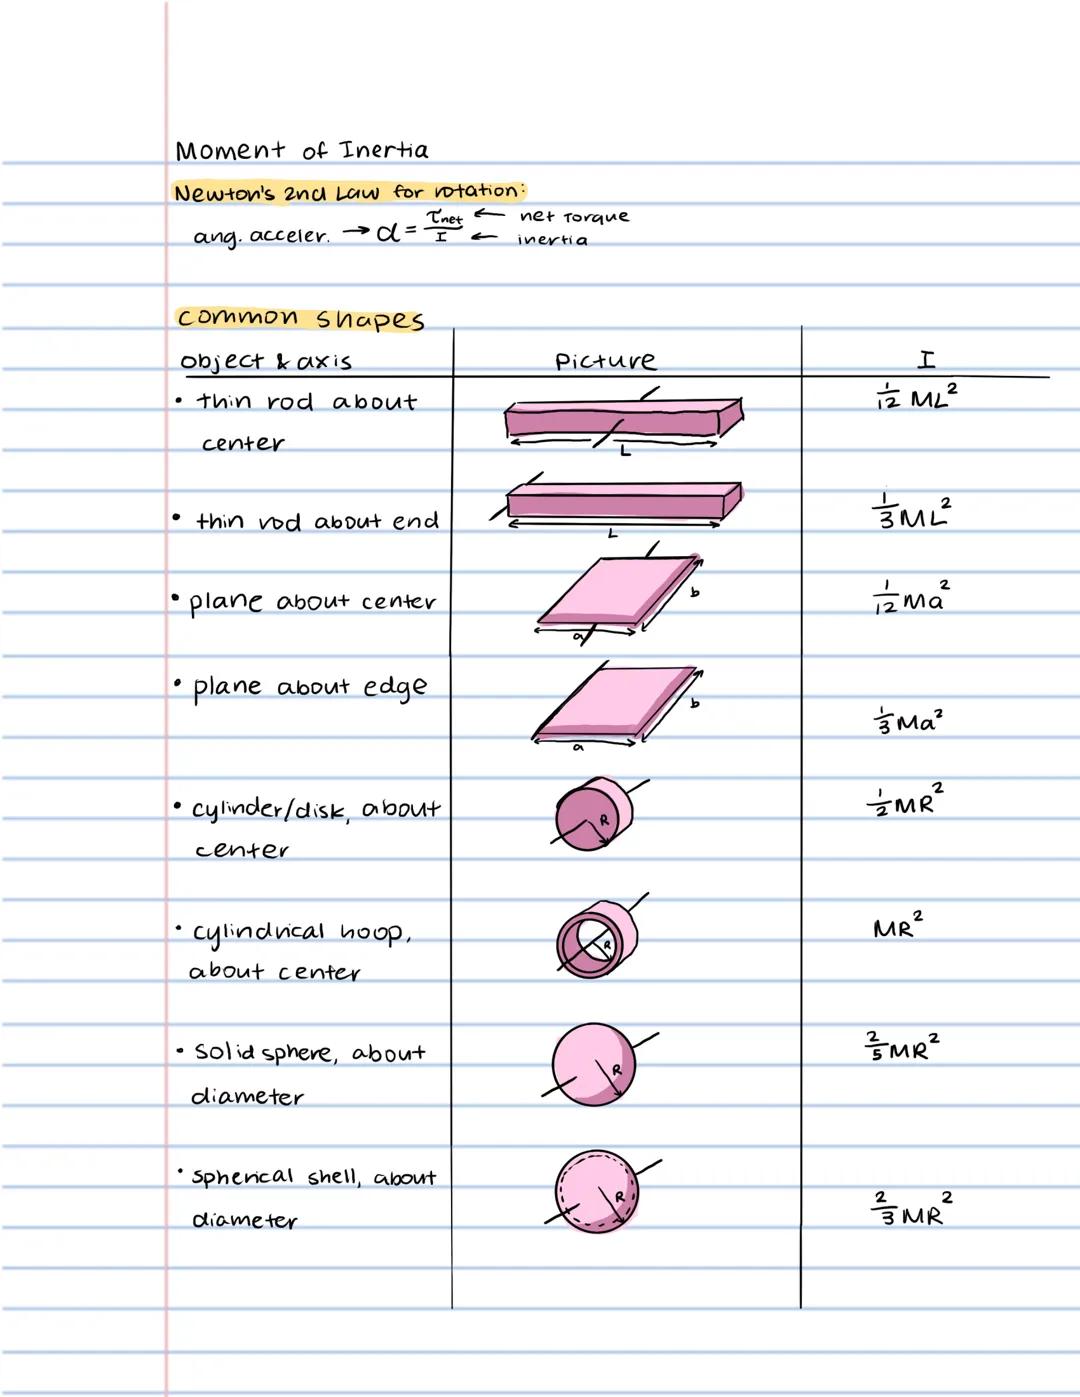 Moment of Inertia
Newton's 2nd Law for rotation:
ang. acceler. → α = τnet/I ← net Torque
← inertia
common shapes
object & axis Picture I
• thin rod about center L 1/12 ML²
• thin rod about end L 1/3 ML²
• plane about center a b 1/12 Ma²
• plane about edge a b 1/3 Ma²
• cylinder/disk, about center R 1/2 MR²
• cylindrical hoop, about center R MR²
• Solid sphere, about diameter R 2/5 MR²
• Spherical shell, about diameter R 2/3 MR²